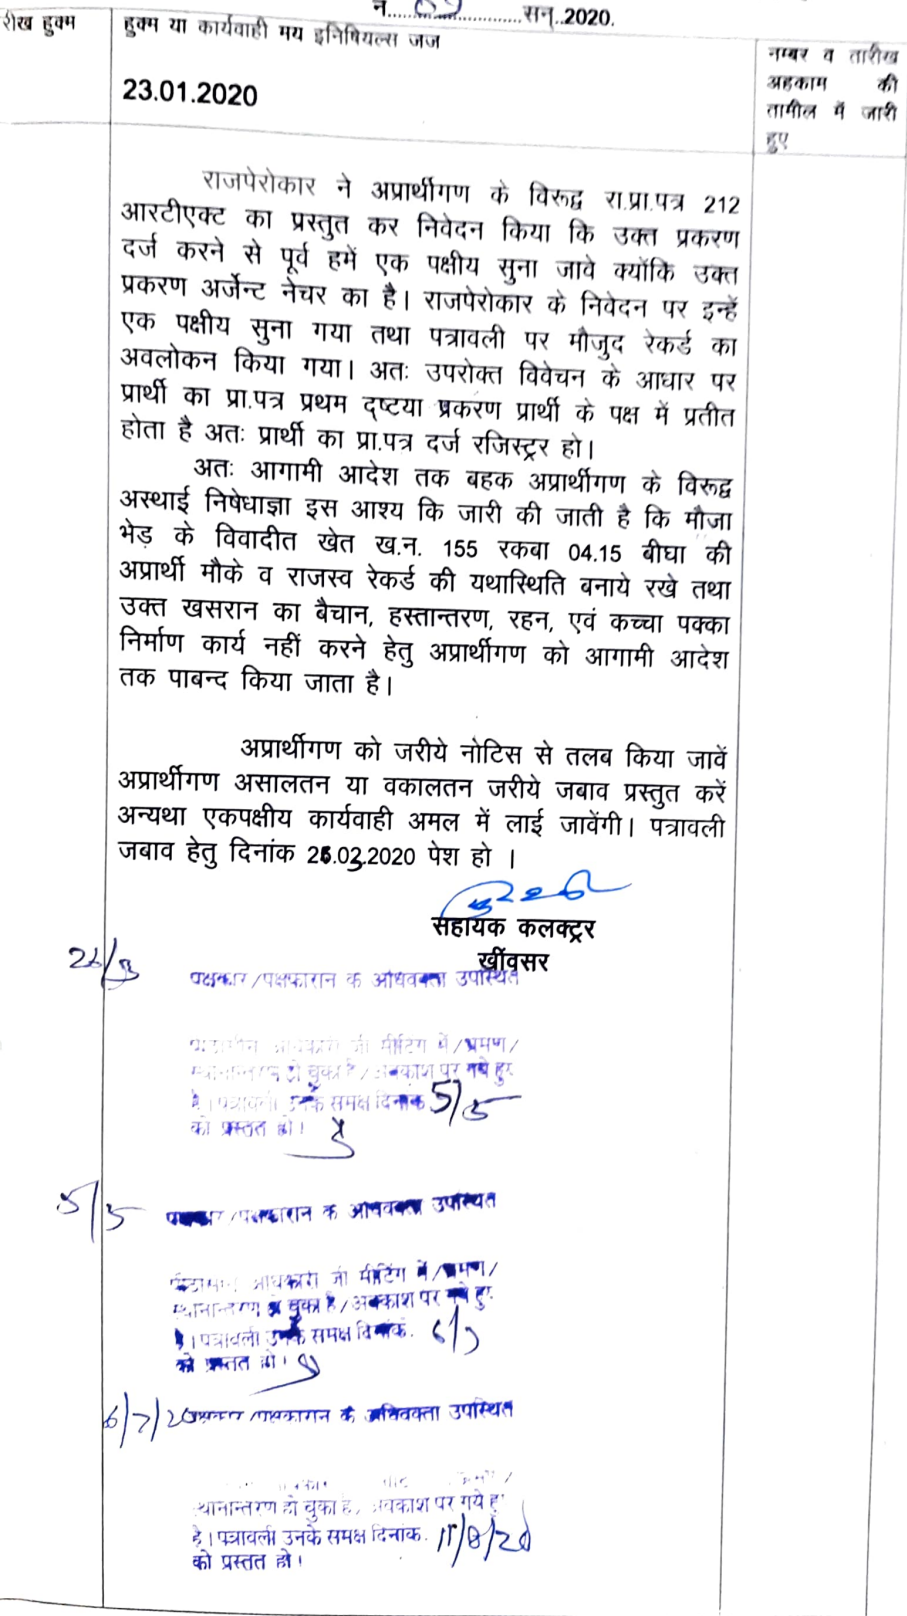 न..................सन्..2020.
रीख हुक्म
हुक्म या कार्यवाही मय इनिषियल्स जज
नम्बर व तारीख
अहकाम की
तामील में जारी
हुए
23.01.2020
राजपेरोकार ने अप्रार्थीगण के विरूद्व रा.प्रा.पत्र 212
आरटीएक्ट का प्रस्तुत कर निवेदन किया कि उक्त प्रकरण
दर्ज करने से पूर्व हमें एक पक्षीय सुना जावे क्योंकि उक्त
प्रकरण अर्जेन्ट नेचर का है। राजपेरोकार के निवेदन पर इन्हें
एक पक्षीय सुना गया तथा पत्रावली पर मौजुद रेकर्ड का
अवलोकन किया गया। अतः उपरोक्त विवेचन के आधार पर
प्रार्थी का प्रा.पत्र प्रथम दृष्टया प्रकरण प्रार्थी के पक्ष में प्रतीत
होता है अतः प्रार्थी का प्रा.पत्र दर्ज रजिस्ट्रर हो।
अतः आगामी आदेश तक बहक अप्रार्थीगण के विरूद्व
अस्थाई निषेधाज्ञा इस आश्य कि जारी की जाती है कि मौजा
भेड़ के विवादीत खेत ख.न. 155 रकबा 04.15 बीघा की
अप्रार्थी मौके व राजस्व रेकर्ड की यथास्थिति बनाये रखे तथा
उक्त खसरान का बैचान, हस्तान्तरण, रहन, एवं कच्चा पक्का
निर्माण कार्य नहीं करने हेतु अप्रार्थीगण को आगामी आदेश
तक पाबन्द किया जाता है।
अप्रार्थीगण को जरीये नोटिस से तलब किया जावें
अप्रार्थीगण असालतन या वकालतन जरीये जबाव प्रस्तुत करें
अन्यथा एकपक्षीय कार्यवाही अमल में लाई जावेंगी। पत्रावली
जबाव हेतु दिनांक 26.03.2020 पेश हो ।
सहायक कलक्ट्रर
खींवसर
26/3
पक्षकार/पक्षकारान के अधिवक्ता उपस्थित
मीटिंग में/भ्रमण/
स्थानान्तरण हो चुका है/अवकाश पर गये हुए
है। पत्रावली उनके समक्ष दिनांक 5/5
को प्रस्तुत हो।
5/5
पक्षकार/पक्षकारान के अधिवक्ता उपस्थित
अधिकारी जी मीटिंग में/भ्रमण/
स्थानान्तरण हो चुका है/अवकाश पर गये हुए
है। पत्रावली उनके समक्ष दिनांक. 6/7
को प्रस्तुत हो।
6/7/20
पक्षकार/पक्षकारान के अधिवक्ता उपस्थित
स्थानान्तरण हो चुका है/अवकाश पर गये हु
है। पत्रावली उनके समक्ष दिनांक. 11/8/20
को प्रस्तुत हो।